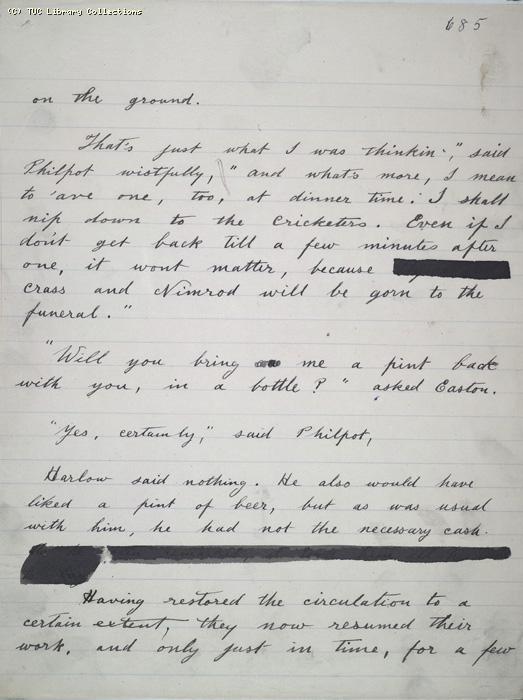 (C) TUC Library Collections
685
on the ground.
That's just what I was thinkin'," said
Philpot wistfully, "and what's more, I mean
to 'ave one, too, at dinner time. I shall
nip down to the Cricketers. Even if I
don't get back till a few minutes after
one, it wont matter, because
Crass and Nimrod will be gorn to the
funeral."
"Will you bring me a pint back
with you, in a bottle?" asked Easton.
"Yes, certainly," said Philpot,
Harlow said nothing. He also would have
liked a pint of beer, but as was usual
with him, he had not the necessary cash.
Having restored the circulation to a
certain extent, they now resumed their
work, and only just in time, for a few